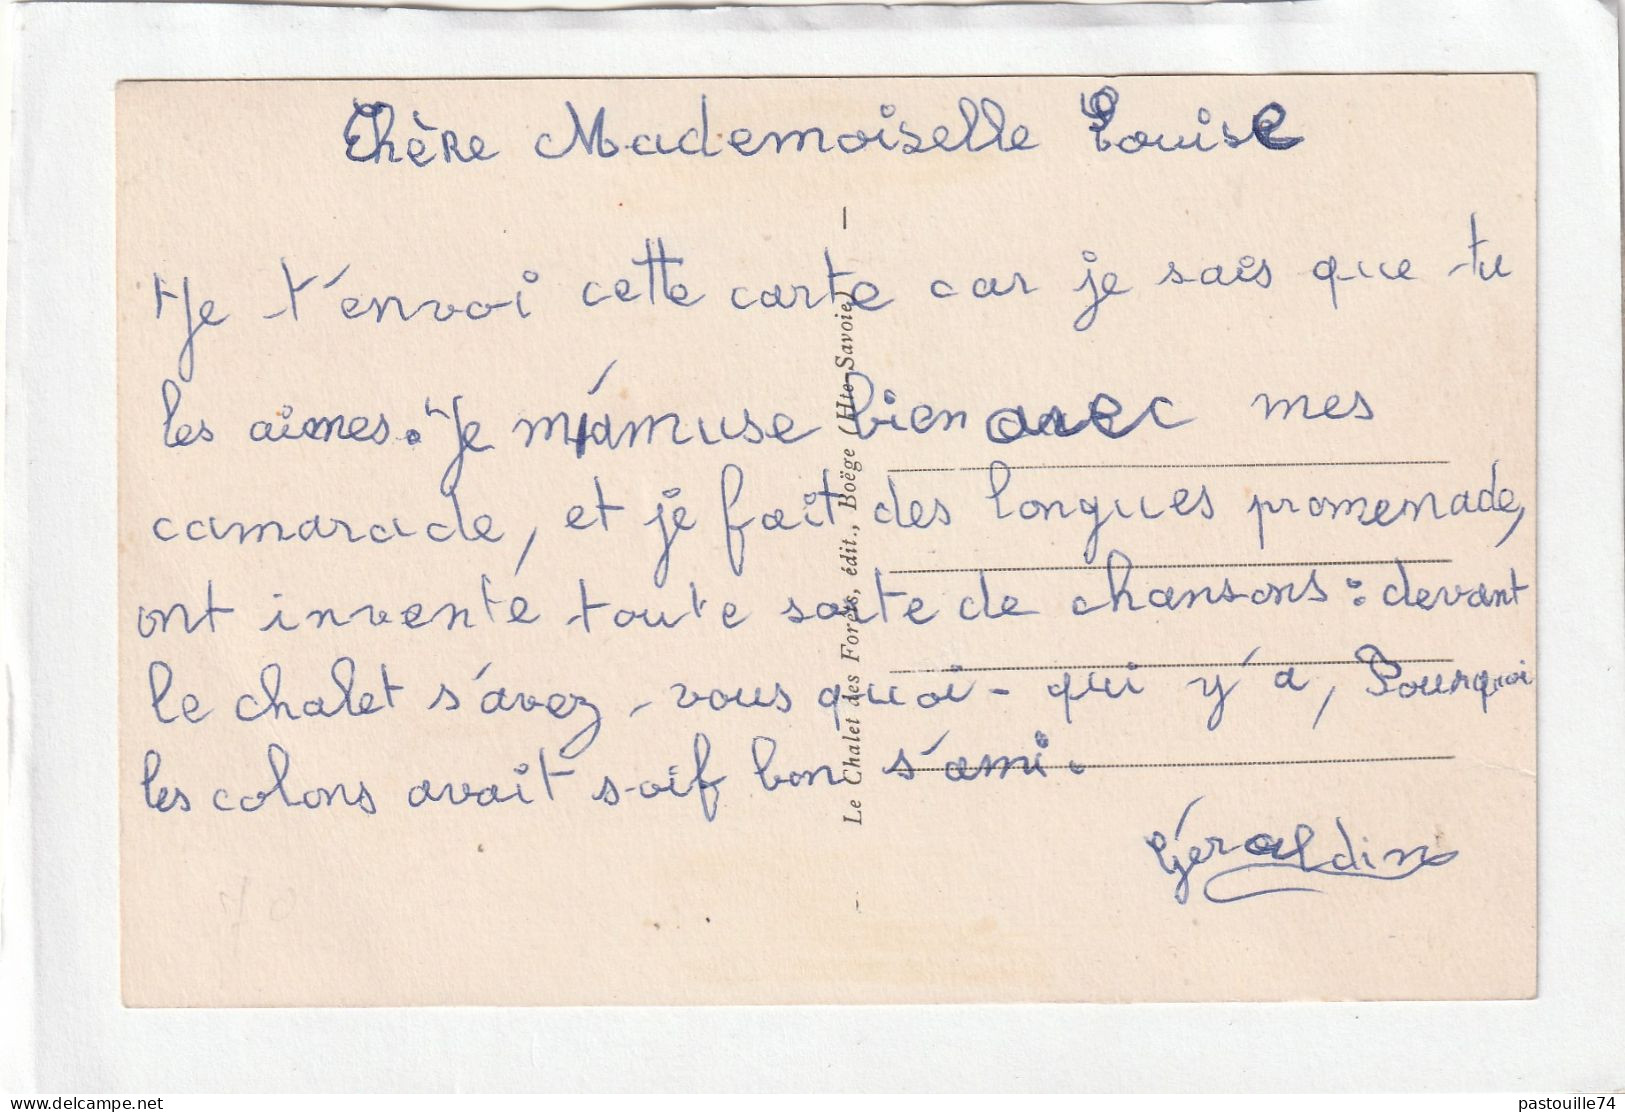 Chère Mademoiselle Louise
Je t'envoi cette carte car je sais que tu
les aimes. Je m'amuse bien avec mes
camarade, et je fait des longues promenade,
ont invente toute sorte de chansons : devant
le chalet s'avez-vous quoi-qui y'a, Pourquoi
les colons avait soif bon s'ami.
Géraldine
Le Chalet des Forêts, édit., Boëge (Hte-Savoie)
pastouille74